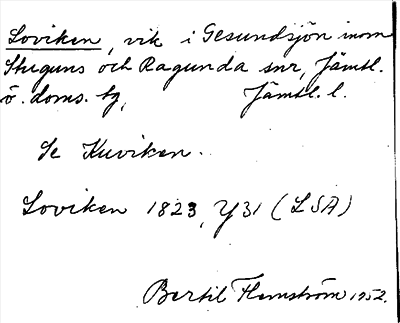 Soviken, vik i Gesundsjön inom
Stuguns och Ragunda snr, Jämtl.
ö. doms. tg, Jämtl. l.
Se Kuviken.
Soviken 1823, Y31 (LSA)
Bertil Flemström 1952.